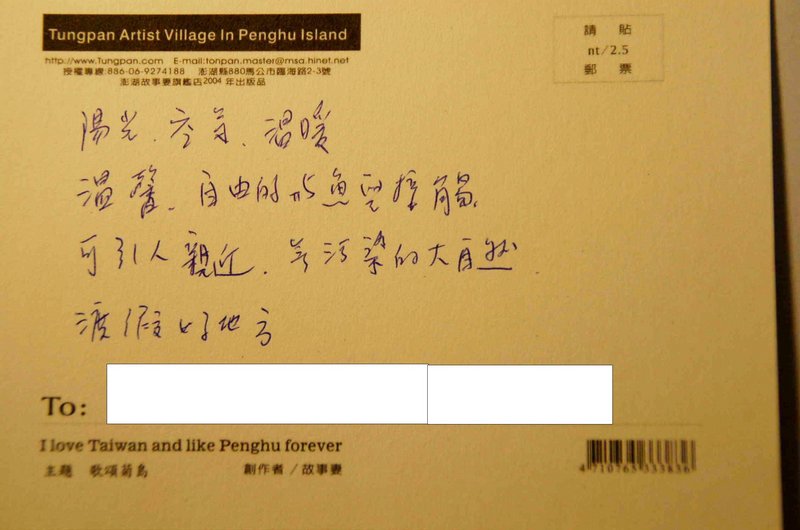 Tungpan Artist Village In Penghu Island
http://www.Tungpan.com E-mail:tonpan.master@msa.hinet.net
授權專線:886-06-9274188 澎湖縣880馬公市臨海路2-3號
澎湖故事妻旗艦店2004年出版品
請貼
nt/2.5
郵票
陽光、空氣、溫暖
溫馨、自由的 魚兒接觸
可引人親近、無污染的大自然
渡假好地方
To:
I love Taiwan and like Penghu forever
主題 歌頌菊島 創作者/故事妻
4710765333836